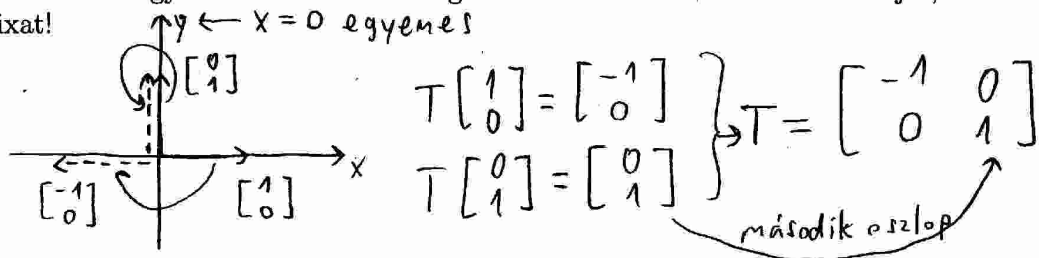 ixat!
y ← x = 0 egyenes
[0 1]
T[1 0] = [-1 0]
T[0 1] = [0 1]
→ T = [-1 0
0 1]
x
[-1 0]
[1 0]
második oszlop